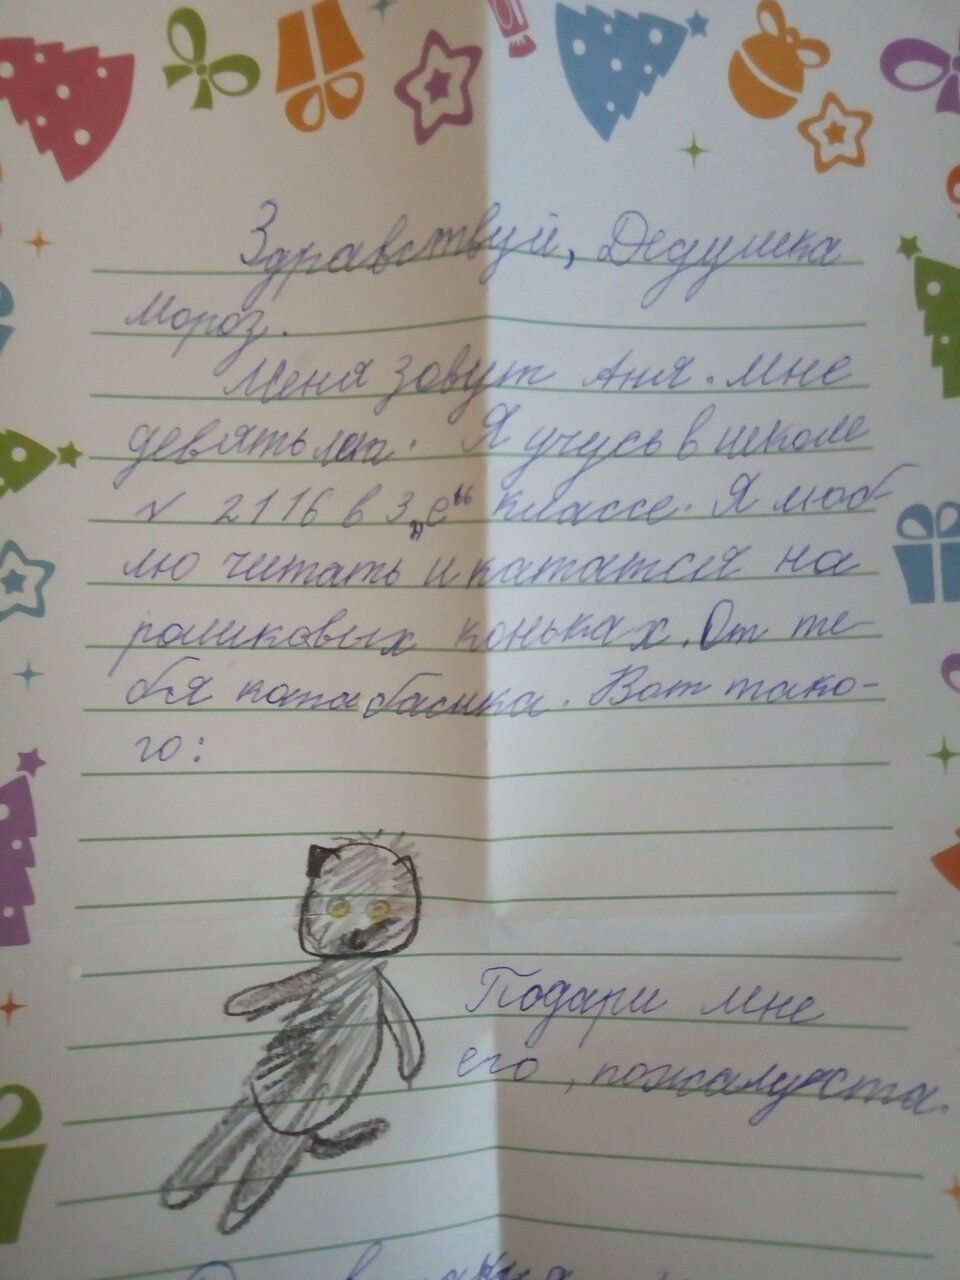 Здравствуй, Дедушка
Мороз.
Меня зовут Аня. Мне
девять лет. Я учусь в школе
№ 2116 в 3 „е“ классе. Я люб-
лю читать и кататся на
роликовых коньках. От те-
бя кота басика. Вот тако-
го:
Подари мне
его, пожалуйста.